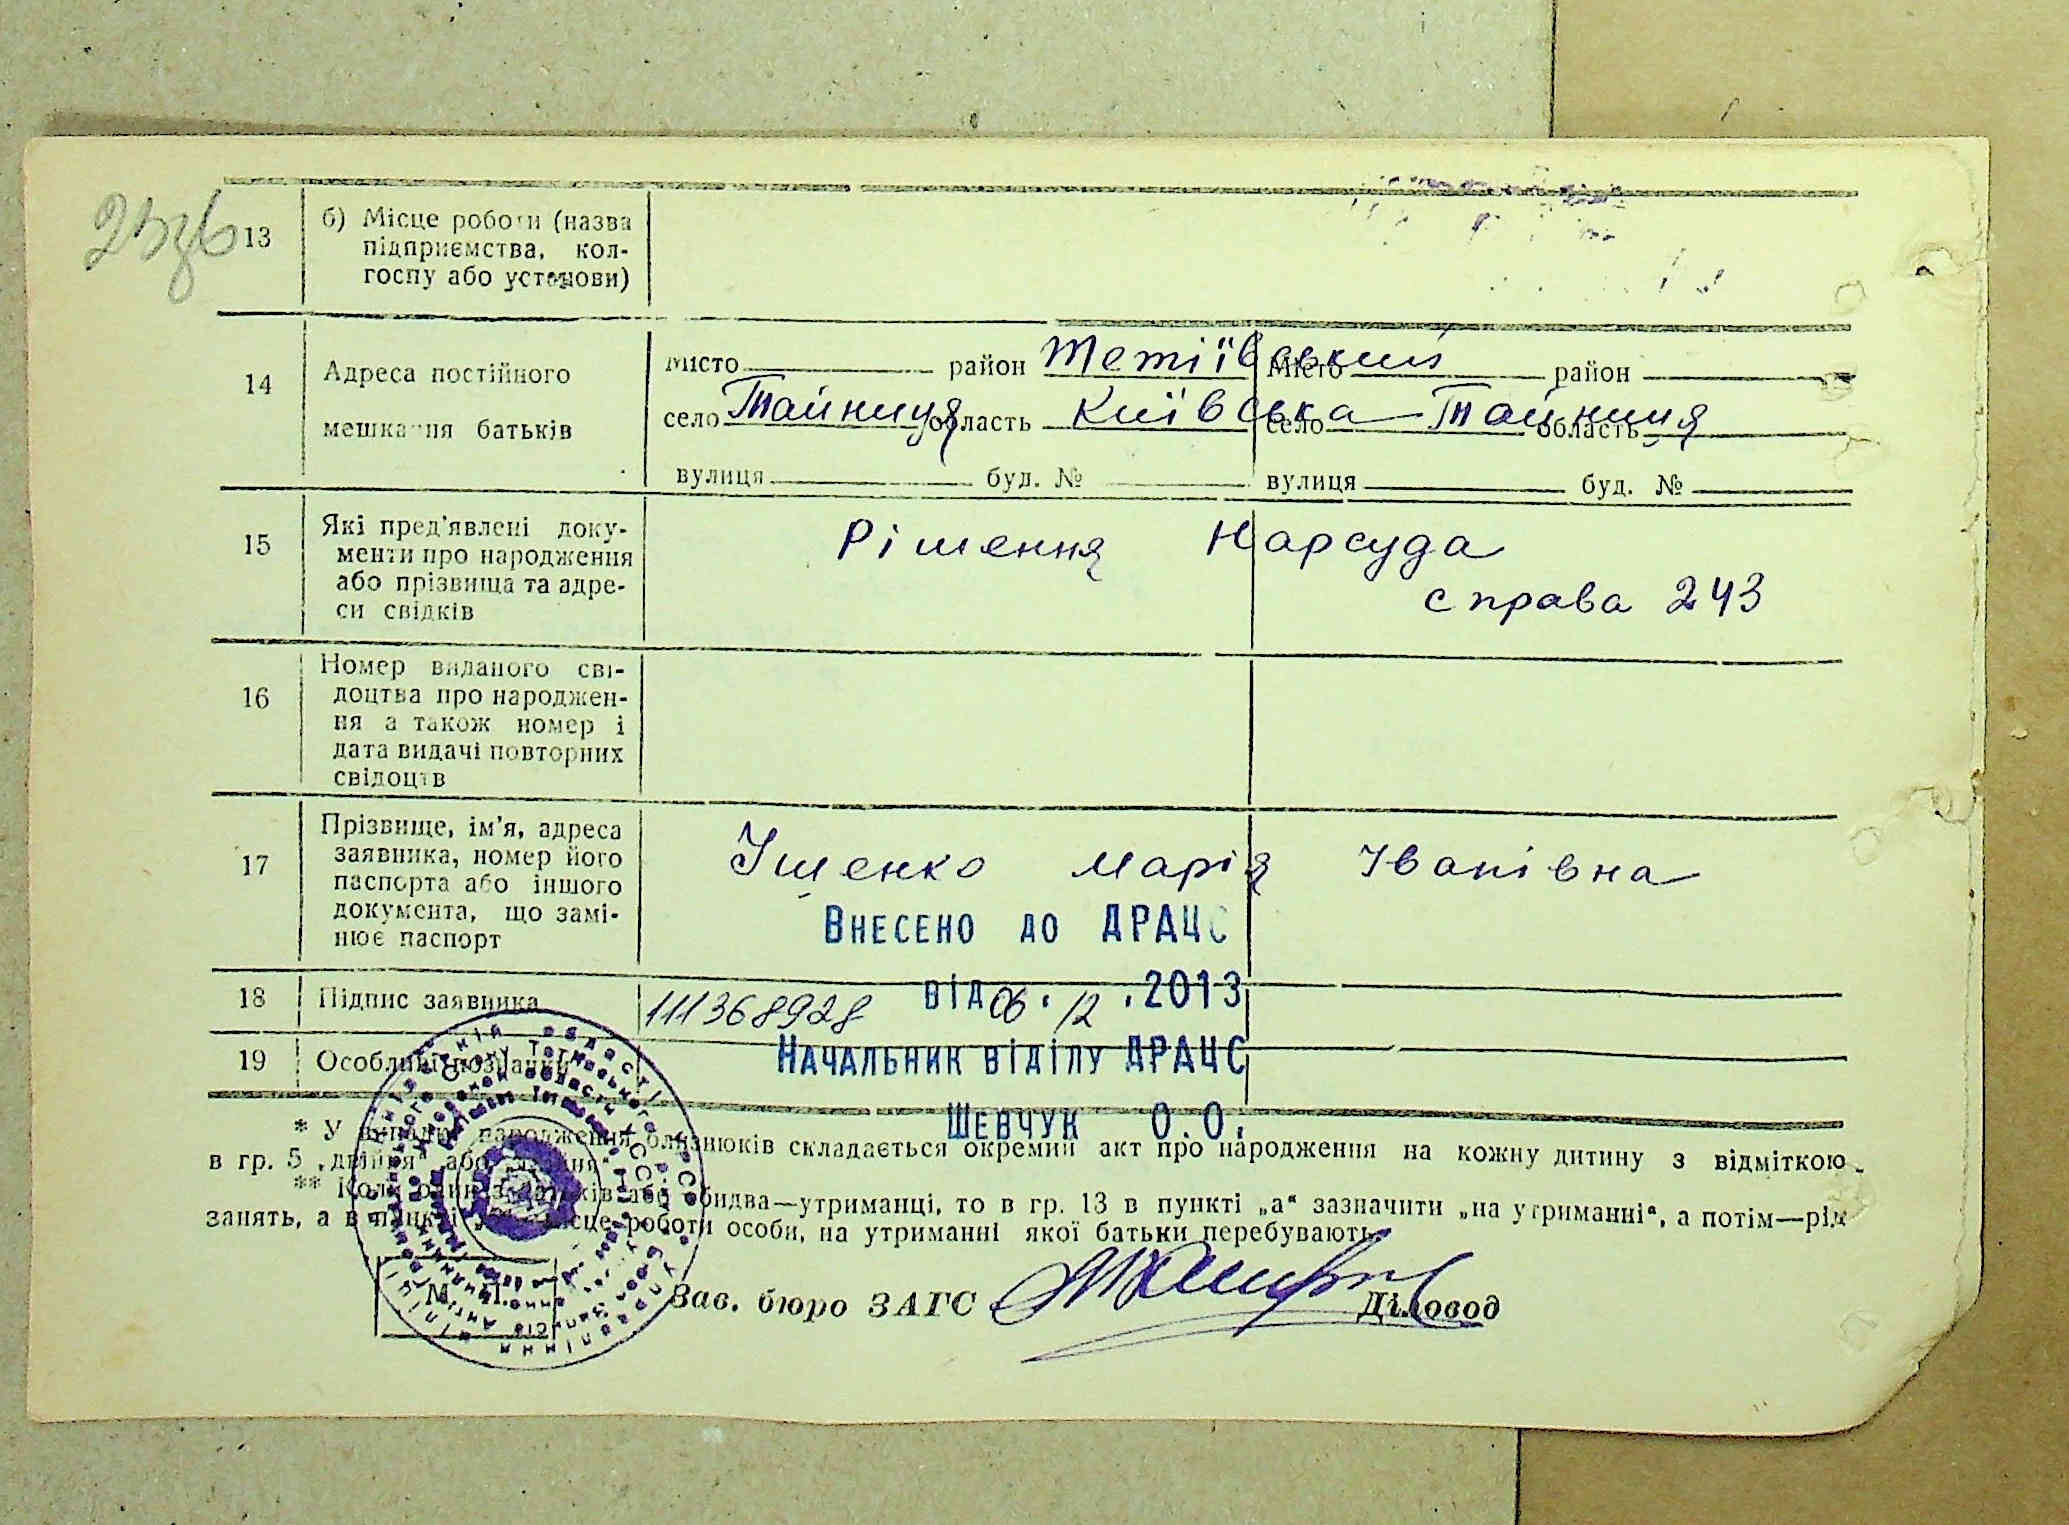 13 б) Місце роботи (назва
підприємства, кол-
госпу або установи)
14 Адреса постійного
мешкання батьків
місто район Тетіївський місто район
село Тайниця область Київська село Тайниця область
вулиця буд. № вулиця буд. №
15 Які пред'явлені доку-
менти про народження
або прізвища та адре-
си свідків
Рішення Нарсуда
справа 243
16 Номер виданого сві-
доцтва про народжен-
ня а також номер і
дата видачі повторних
свідоцтв
17 Прізвище, ім'я, адреса
заявника, номер його
паспорта або іншого
документа, що замі-
нює паспорт
Іщенко Марія Іванівна
Внесено до ДРАЦС
18 Підпис заявника 111368928 від 06.12.2013
19 Особливі позначки Начальник віділу ДРАЦС
Шевчук О.О.
* У випадку народження близнюків складається окремий акт про народження на кожну дитину з відміткою
в гр. 5 „двійня“ або
** Коли один з батьків або обидва—утриманці, то в гр. 13 в пункті „а“ зазначити „на утриманні“, а потім—рід
занять, а в пункті місце роботи особи, на утриманні якої батьки перебувають.
М. П.
Зав. бюро ЗАГС Діловод